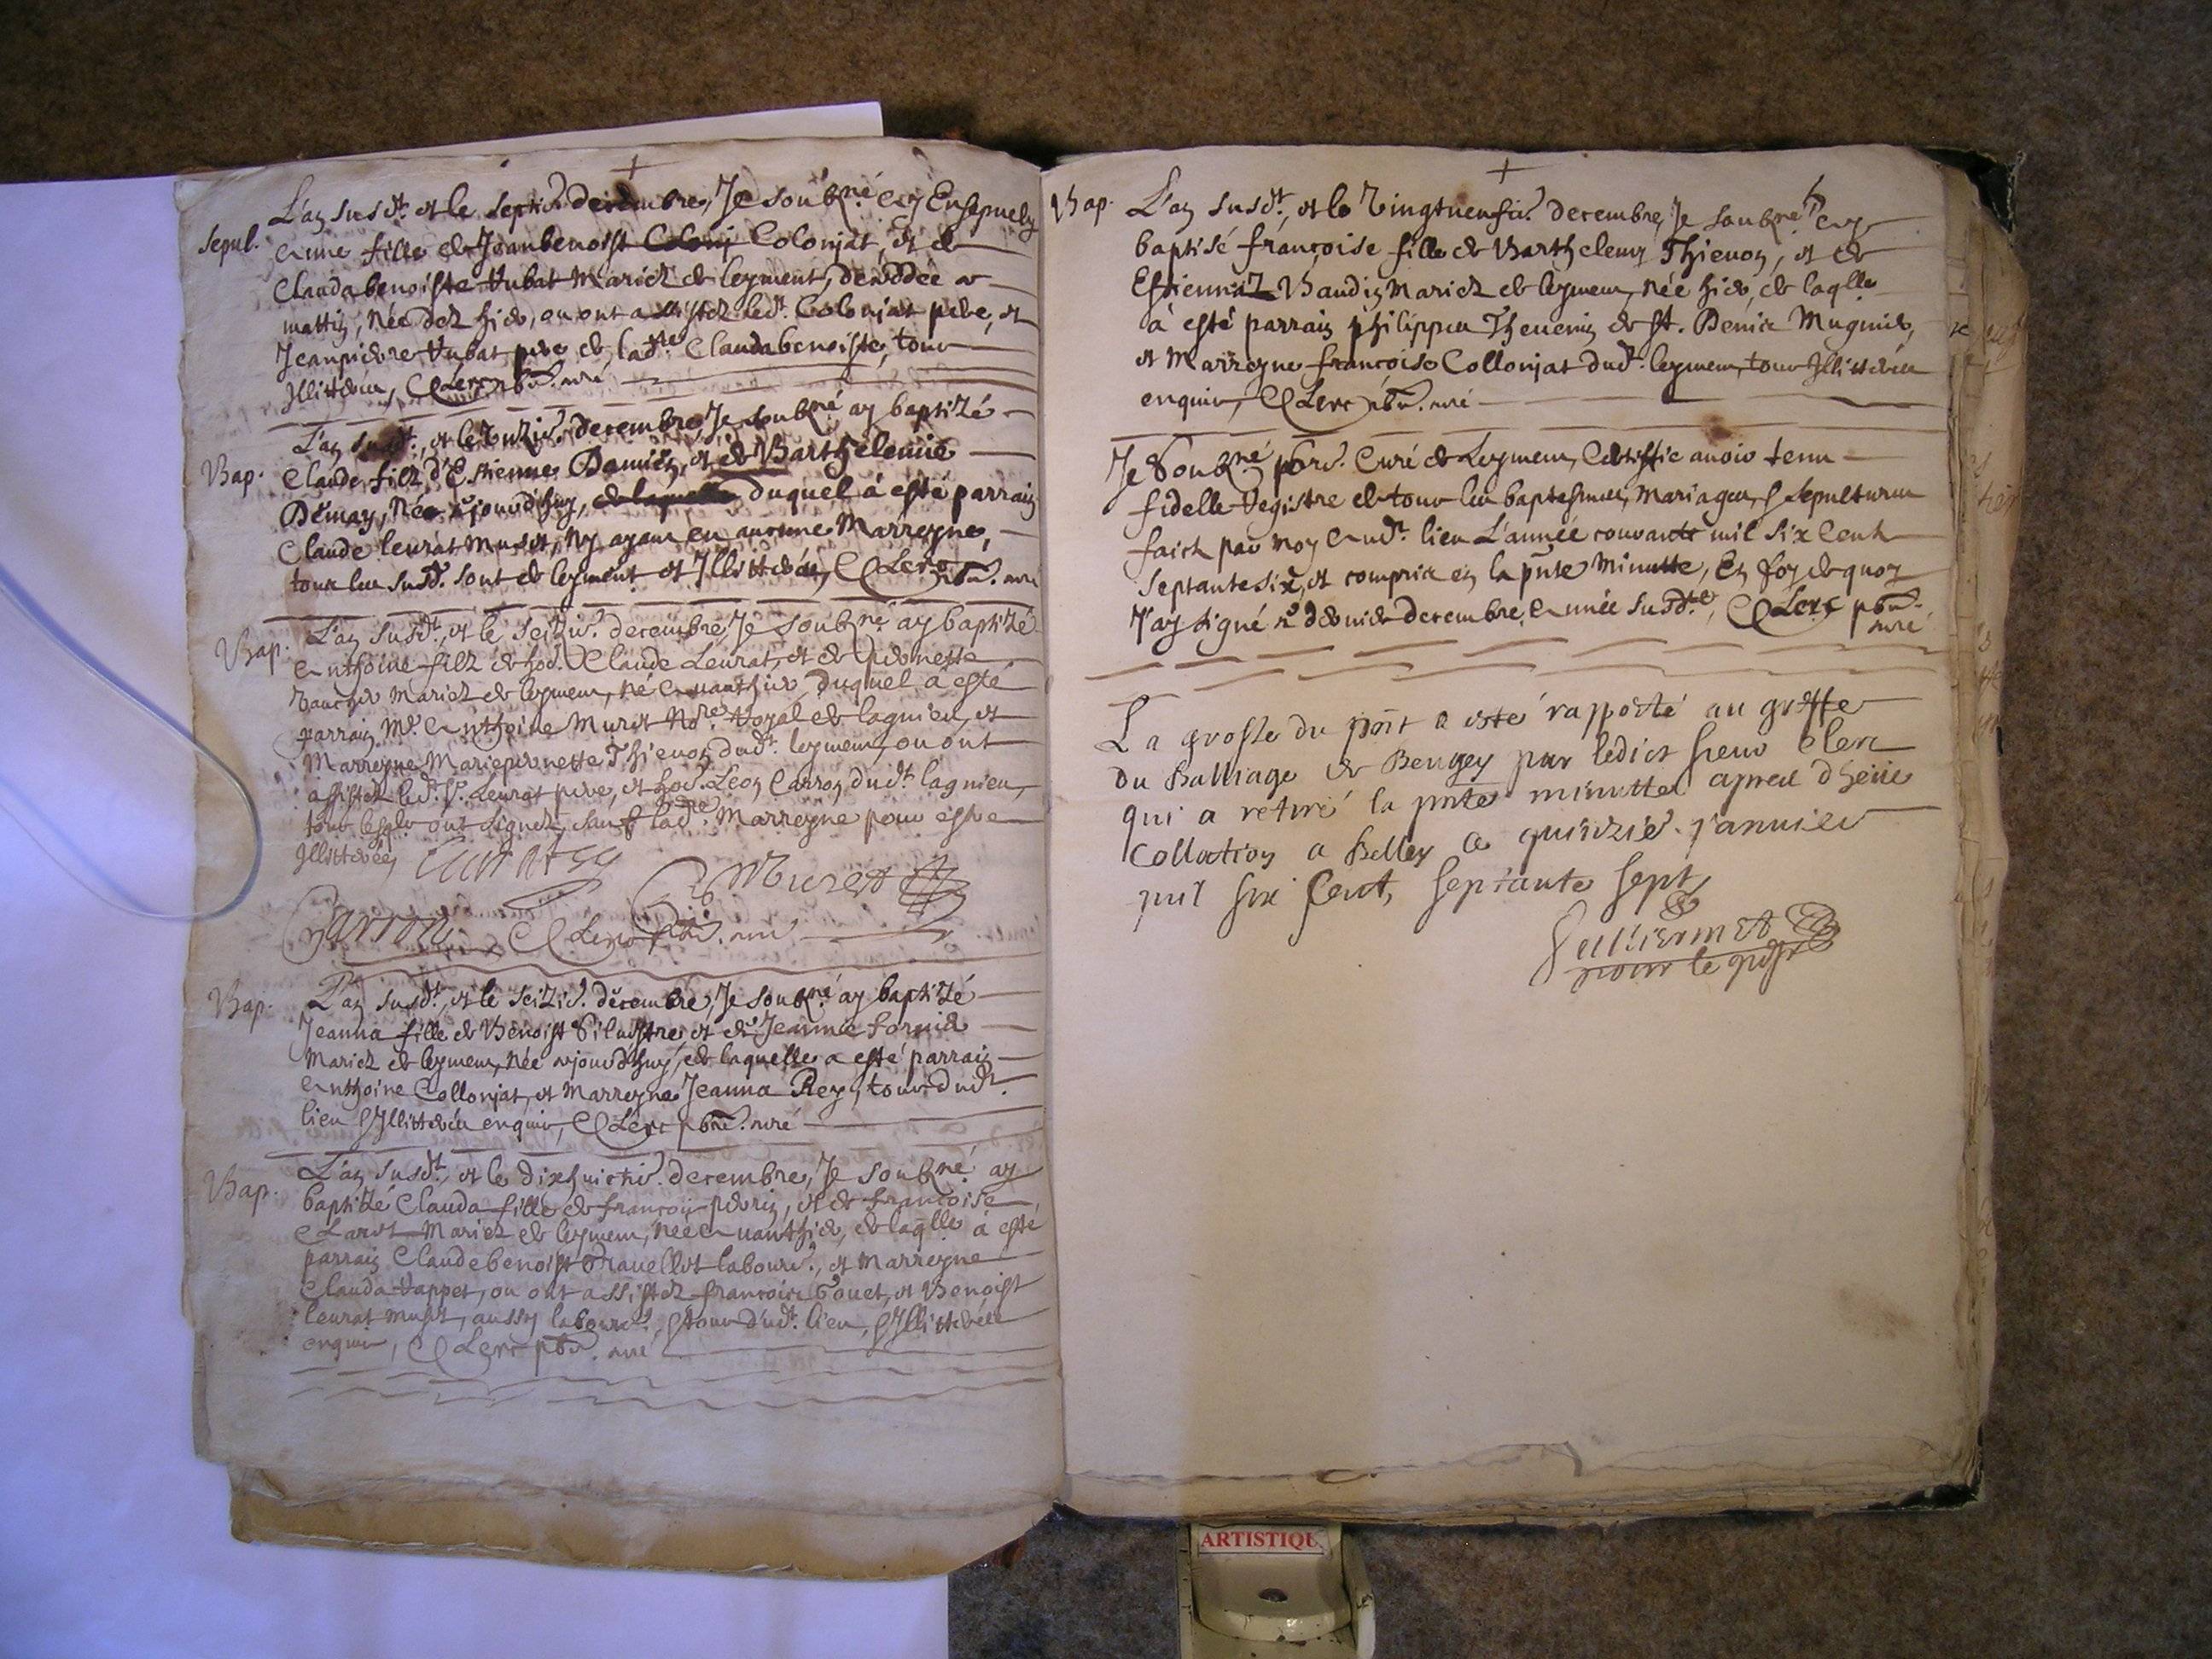 Sepul.
L'an susdt. et le septie. decembre, Je soubzné ay Ensepuely
une fille de Jeanbenoist Colonjat, et de
Claudabenoiste Vubat Mariez de leyment, decedée ce
mattin, Née dez hier, ou ont assistez led. Colonjat pere, et
Jeanpierre Vubat pere de ladte. Claudabenoiste, tous
Illitterés, Clerc pbre. curé
Bap.
L'an susdt., et le unzie. decembre, Je soubzné ay baptizé
Claude filz d'Estienne Damien, et de Barthelemie
Demay, Né ajourdhuy, duquel à esté parrain
Claude leurat Muset, Ny ayant eu aucune Marreyne,
tous les susd. sont de leyment et Illitterés, Clerc pbre. curé
Bap.
L'an susdt., et le seizie. decembre, Je soubzné ay baptizé
Anthoine filz de hod. Claude Leurat, et de pernette
Vaucher Mariez de leymen, Né avanthier, duquel à esté
parrain Me. Anthoine Muret Nore. Royal de lagnieu, et
Marreyne Mariepernette Thievon dudt. leymen, ou ont
assistez led. Sr. Leurat pere, et hod. Leon Carron dudt. lagnieu,
tous lesqls ont signez, sauf ladte. Marreyne pour estre
Illitterée,
Muret
Carron Clerc pbre. curé
Bap.
L'an susdt., et le seizie. decembre, Je soubzné ay baptizé
Jeanna fille de Benoist Siluestre, et de Jeanne fornier
Mariez de leymen, Née ajourdhuy, de laquelle a esté parrain
Anthoine Collonjat, et Marreyne Jeanna Rey, tous dudt.
lieu & Illitterés enquis, Clerc pbre. curé
Bap.
L'an susdt., et le dixhuictie. decembre, Je soubzné ay
baptizé Clauda fille de francois perrin, et de francoise
Claret Mariez de leymen, Née avanthier, de laqlle à esté
parrain Claudebenoist Trauellet laboure., et Marreyne
Clauda Vappet, ou ont assistez francois Bouet, et Benoist
leurat Muset, aussy laboure., & tous dudt. lieu, & Illitterés
enquis, Clerc pbre. curé
Bap.
L'an susdt., et le Vingtneufie. decembre, Je soubzné ay
baptisé françoise fille de Barthelemy Thievon, et de
Estienna Baudin Mariez de leymen, Née hier, de laqlle
à esté parrain philippes Thevenin de St. Denis Mugnier,
et Marreyne francoise Collonjat dudt. leymen, tous Illitterés
enquis, Clerc pbre. curé
Je Soubzné pbre. Curé de Leymen, Certiffie avoir tenu
fidelle Registre de tous les baptesmes, Mariages, & sepultures
faictz par moy audt. lieu L'année courante mil six Centz
septantesix, et compris en la pnte Minutte, En foy de quoy
J'ay signé ce dernier decembre, année susdte, Clerc pbre.
curé
La grosse du pnt a esté rapporté au greffe
du Balliage de Beugey par ledict sieur Clerc
qui a retiré la pnte minutte apres dheüe
Collation a Belley ce quinzie. januier
mil six Cent septante sept
pour le greffe
ARTISTIQU